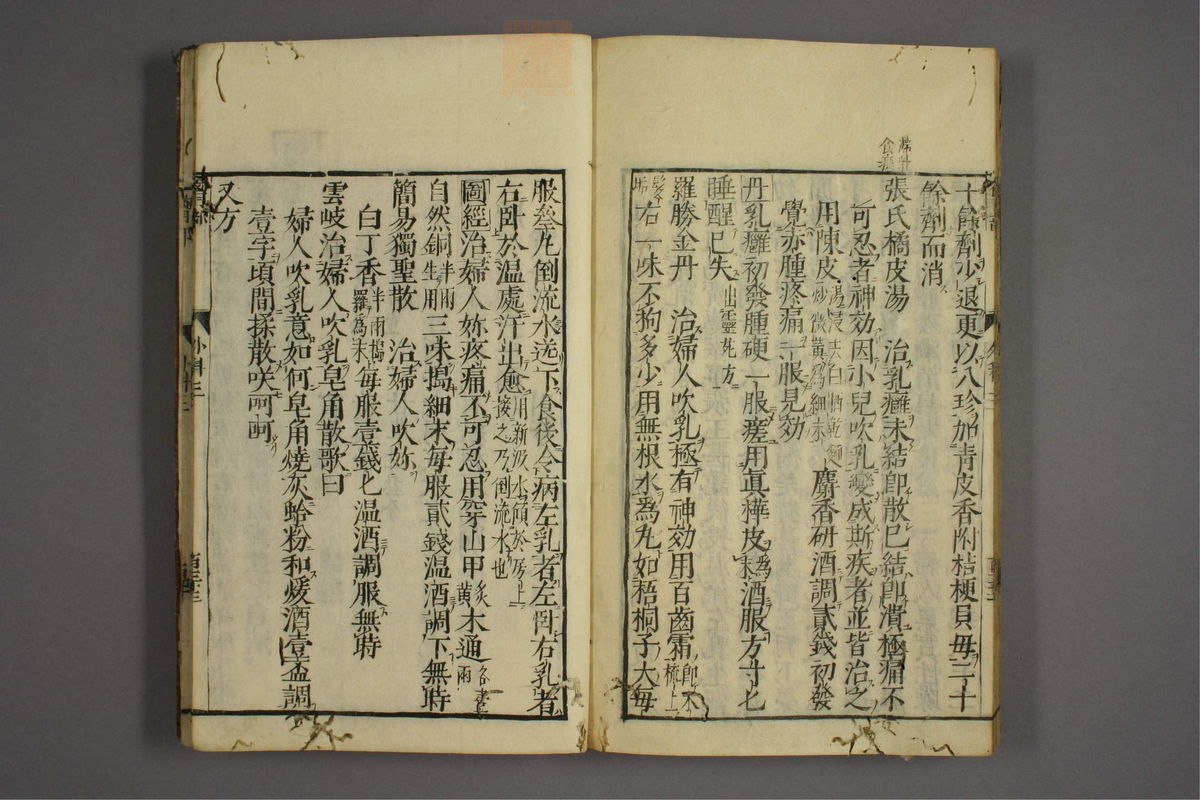 十餘劑少退更以八珍加青皮香附桔梗貝毋二十
餘劑而消
張氏橘皮湯 治乳癰未結即散已結即潰極痛不
可忍者神効因小兒吹乳變成斯疾者並皆治之
用陳皮湯浸去白晒乾麵炒微黃為細末麝香研酒調貳錢初發
覺赤腫疼痛一服見効
丹乳癰初發腫硬一服瘥用眞樺皮為末酒服方寸匕
睡醒已失出靈苑方
羅勝金丹 治婦人吹乳極有神効用百齒霜即木梳上
髮垢右一味不狗多少用無根水為丸如梧桐子大每
服叄丸倒流水送下食後令病左乳者左卧右乳者
右卧於温處汗出愈用新汲水傾於房上接之乃倒流水也
圖經治婦人妳疼痛不可忍用穿山甲炙黃木通各壹兩
自然銅半兩生用三味搗細末每服貳錢温酒調下無時
簡易獨聖散 治婦人吹妳
白丁香半兩搗羅為末每服壹錢匕温酒調服無時
雲岐治婦人吹乳皂角散歌曰
婦人吹乳意如何皂角燒灰蛤粉和煖酒壹盃調
壹字頃間揉散咲呵呵
又方